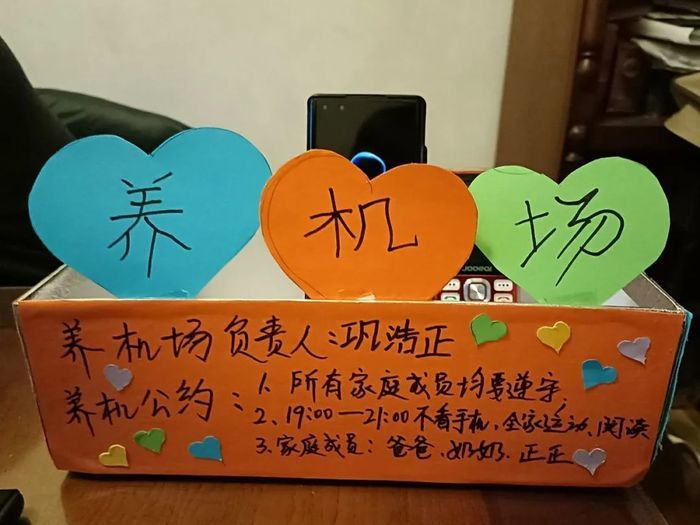 养机场
养机场负责人:巩浩正
养机公约:1、所有家庭成员均要遵守,
2、19:00—21:00不看手机,全家运动、阅读
3、家庭成员:爸爸、奶奶、正正